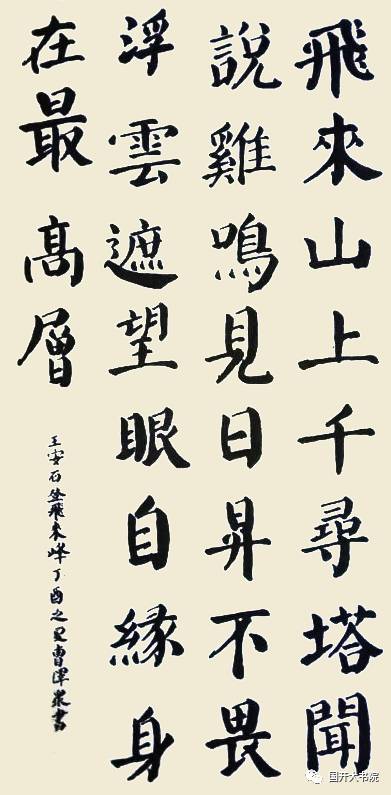 飛來山上千尋塔聞
說雞鳴見日昇不畏
浮雲遮望眼自緣身
在最髙層
王安石登飛来峰丁酉之夏曹書
国开大书院